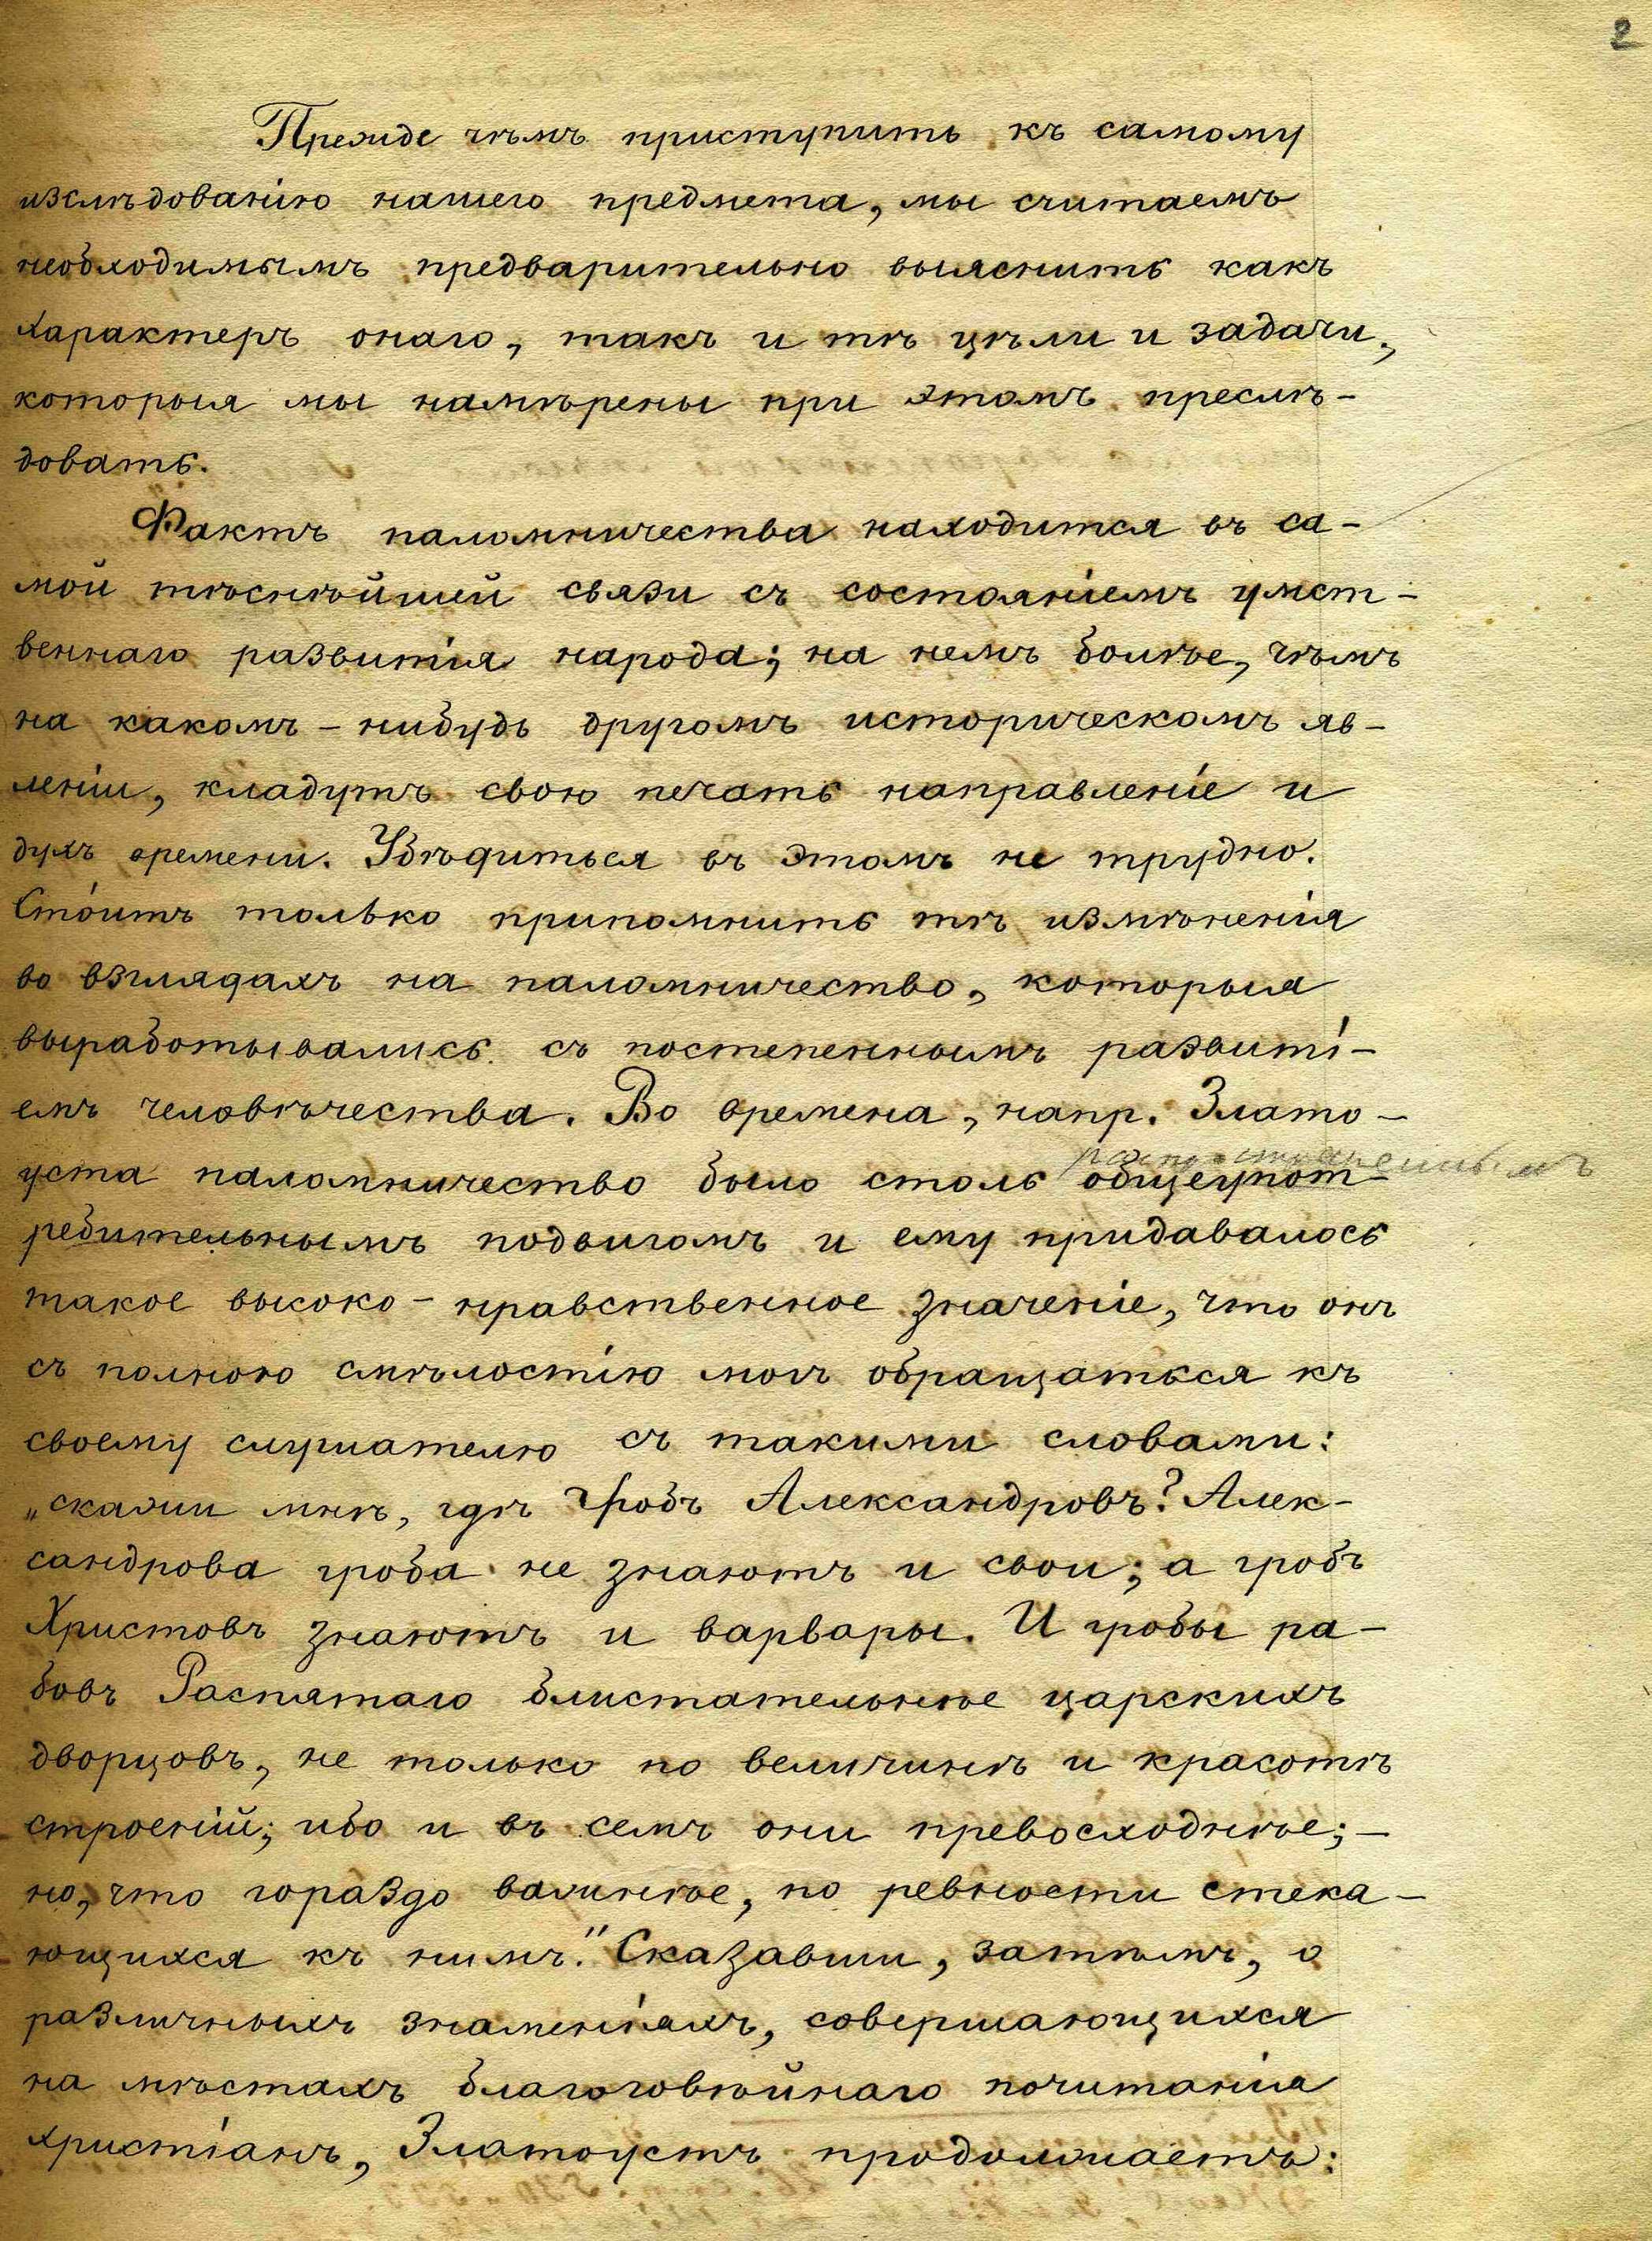 2
Прежде чѣмъ приступить къ самому
изслѣдованію нашего предмета, мы считаемъ
необходимымъ предварительно выяснить какъ
характеръ онаго, такъ и тѣ цѣли и задачи,
которыя мы намѣрены при этомъ преслѣ-
довать.
Фактъ паломничества находится въ са-
мой тѣснѣйшей связи съ состояніемъ умст-
веннаго развитія народа; на немъ болѣе, чѣмъ
на какомъ-нибудь другомъ историческомъ яв-
леніи, кладутъ свою печать направленіе и
духъ времени. Убѣдиться въ этомъ не трудно.
Стóитъ только припомнить тѣ измѣненія
во взглядахъ на паломничество, которыя
выработывались съ постепеннымъ развиті-
емъ человѣчества. Во времена, напр. Злато-
распространеннымъ
уста паломничество было столь общеупот-
ребительнымъ подвигомъ и ему придавалось
такое высоко-нравственное значеніе, что онъ
съ полною смѣлостію могъ обращаться къ
своему слушателю съ такими словами:
„скажи мнѣ, гдѣ гробъ Александровъ? Алек-
сандрова гроба не знаютъ и свои; а гробъ
Христовъ знаютъ и варвары. И гробы ра-
бовъ Распятаго блистательнѣе царскихъ
дворцовъ, не только по величинѣ и красотѣ
строеній; ибо и въ семъ они превосходнѣе;—
но, что гораздо важнѣе, по ревности стека-
ющихся къ нимъ." Сказавши, затѣмъ, о
различныхъ знаменіяхъ, совершающихся
на мѣстахъ благоговѣйнаго почитанія
христіанъ, Златоустъ продолжаетъ: